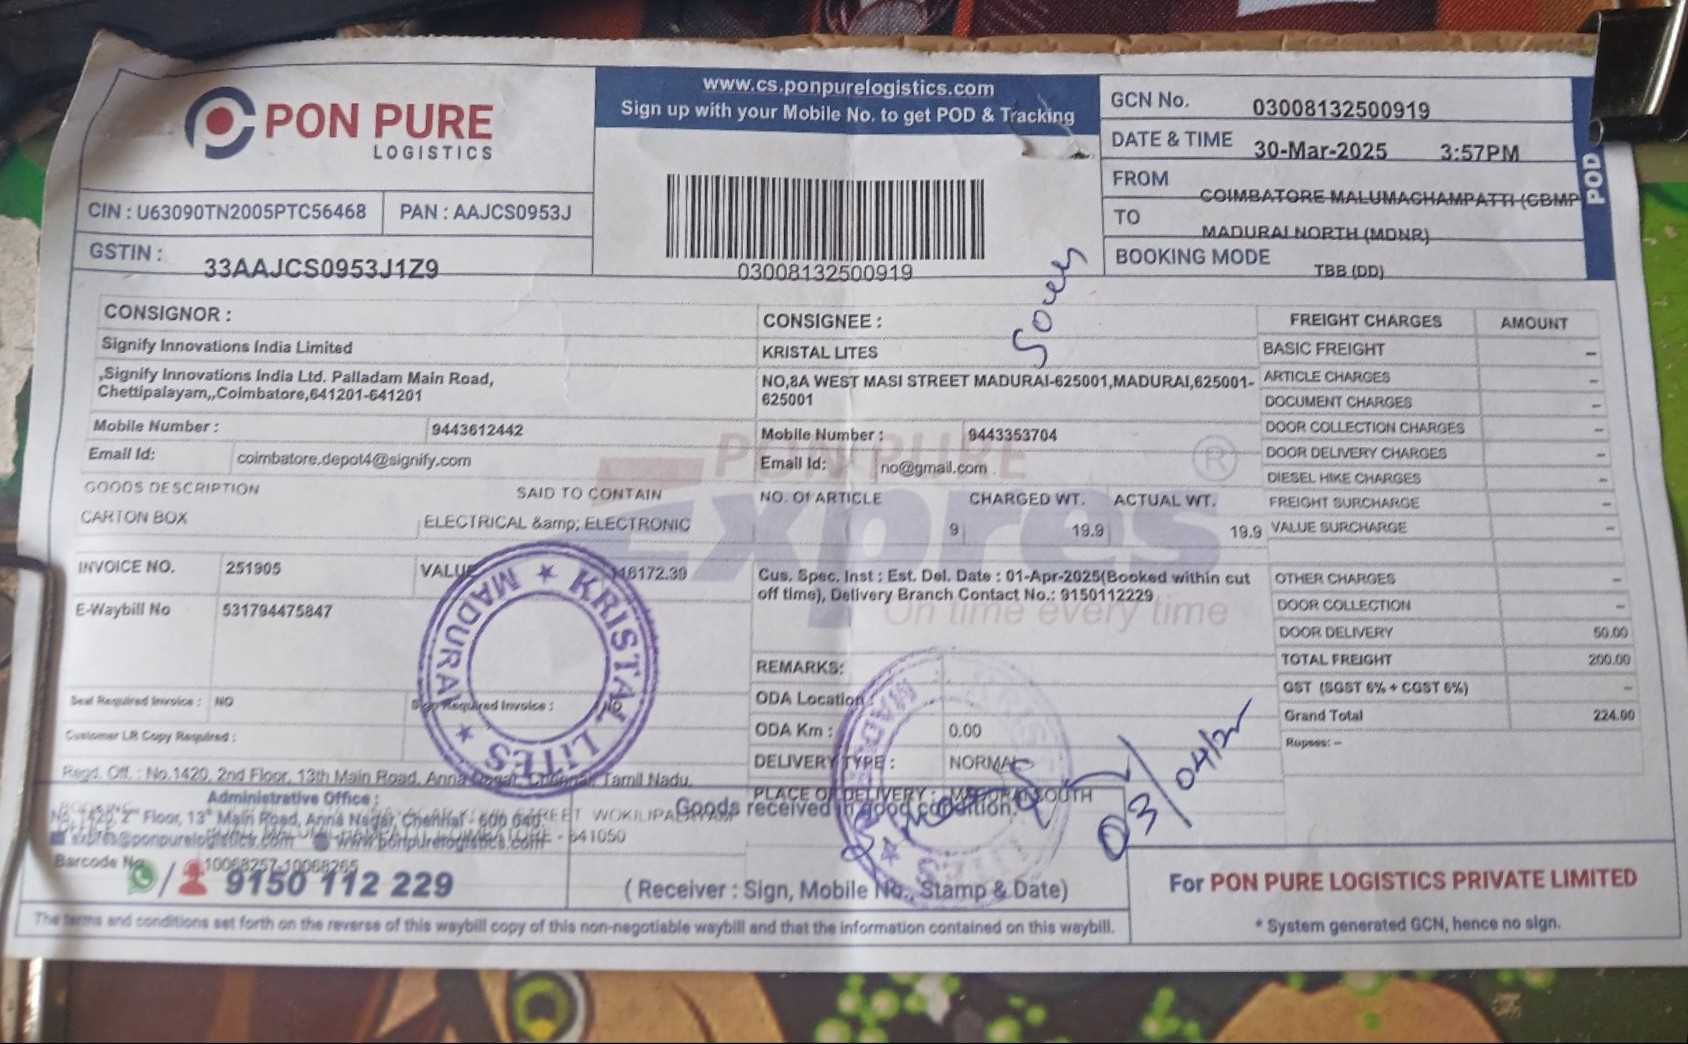 PON PURE
LOGISTICS
CIN : U63090TN2005PTC56468 PAN : AAJCS0953J
GSTIN : 33AAJCS0953J1Z9
www.cs.ponpurelogistics.com
Sign up with your Mobile No. to get POD & Tracking
03008132500919
GCN No. 03008132500919
DATE & TIME 30-Mar-2025 3:57PM
FROM COIMBATORE MALUMACHAMPATTI (CBMP
TO MADURAI NORTH (MDNR)
BOOKING MODE TBB (DD)
POD
CONSIGNOR :
Signify Innovations India Limited
,Signify Innovations India Ltd. Palladam Main Road,
Chettipalayam,,Coimbatore,641201-641201
Mobile Number : 9443612442
Email Id: coimbatore.depot4@signify.com
CONSIGNEE :
KRISTAL LITES
NO,8A WEST MASI STREET MADURAI-625001,MADURAI,625001-
625001
Mobile Number : 9443353704
Email Id: no@gmail.com
GOODS DESCRIPTION SAID TO CONTAIN NO. Of ARTICLE CHARGED WT. ACTUAL WT.
CARTON BOX ELECTRICAL &amp; ELECTRONIC 9 19.9 19.9
PON PURE
Expres
On time every time
INVOICE NO. 251905 VALUE 16172.39
E-Waybill No 531794475847
Seal Required Invoice : NO Sign Required Invoice : NO
Customer LR Copy Required :
Cus. Spec. Inst : Est. Del. Date : 01-Apr-2025(Booked within cut
off time), Delivery Branch Contact No.: 9150112229
REMARKS:
ODA Location
ODA Km : 0.00
DELIVERY TYPE : NORMAL
PLACE OF DELIVERY : SOUTH
FREIGHT CHARGES AMOUNT
BASIC FREIGHT –
ARTICLE CHARGES –
DOCUMENT CHARGES –
DOOR COLLECTION CHARGES –
DOOR DELIVERY CHARGES –
DIESEL HIKE CHARGES –
FREIGHT SURCHARGE –
VALUE SURCHARGE –
OTHER CHARGES –
DOOR COLLECTION –
DOOR DELIVERY 50.00
TOTAL FREIGHT 200.00
GST (SGST 6% + CGST 6%) –
Grand Total 224.00
Rupees: –
Regd. Off. : No.1420, 2nd Floor, 13th Main Road, Anna Nagar, Chennai, Tamil Nadu.
Administrative Office :
No, 1420, 2nd Floor, 13th Main Road, Anna Nagar, Chennai - 600 040
@ponpurelogistics.com www.ponpurelogistics.com - 641050
Barcode No 10068257-10068265
9150 112 229
Goods received in good condition.
(Receiver : Sign, Mobile No., Stamp & Date)
03/04/25
KRISTAL LITES
MADURAI
For PON PURE LOGISTICS PRIVATE LIMITED
* System generated GCN, hence no sign.
The terms and conditions set forth on the reverse of this waybill copy of this non-negotiable waybill and that the information contained on this waybill.